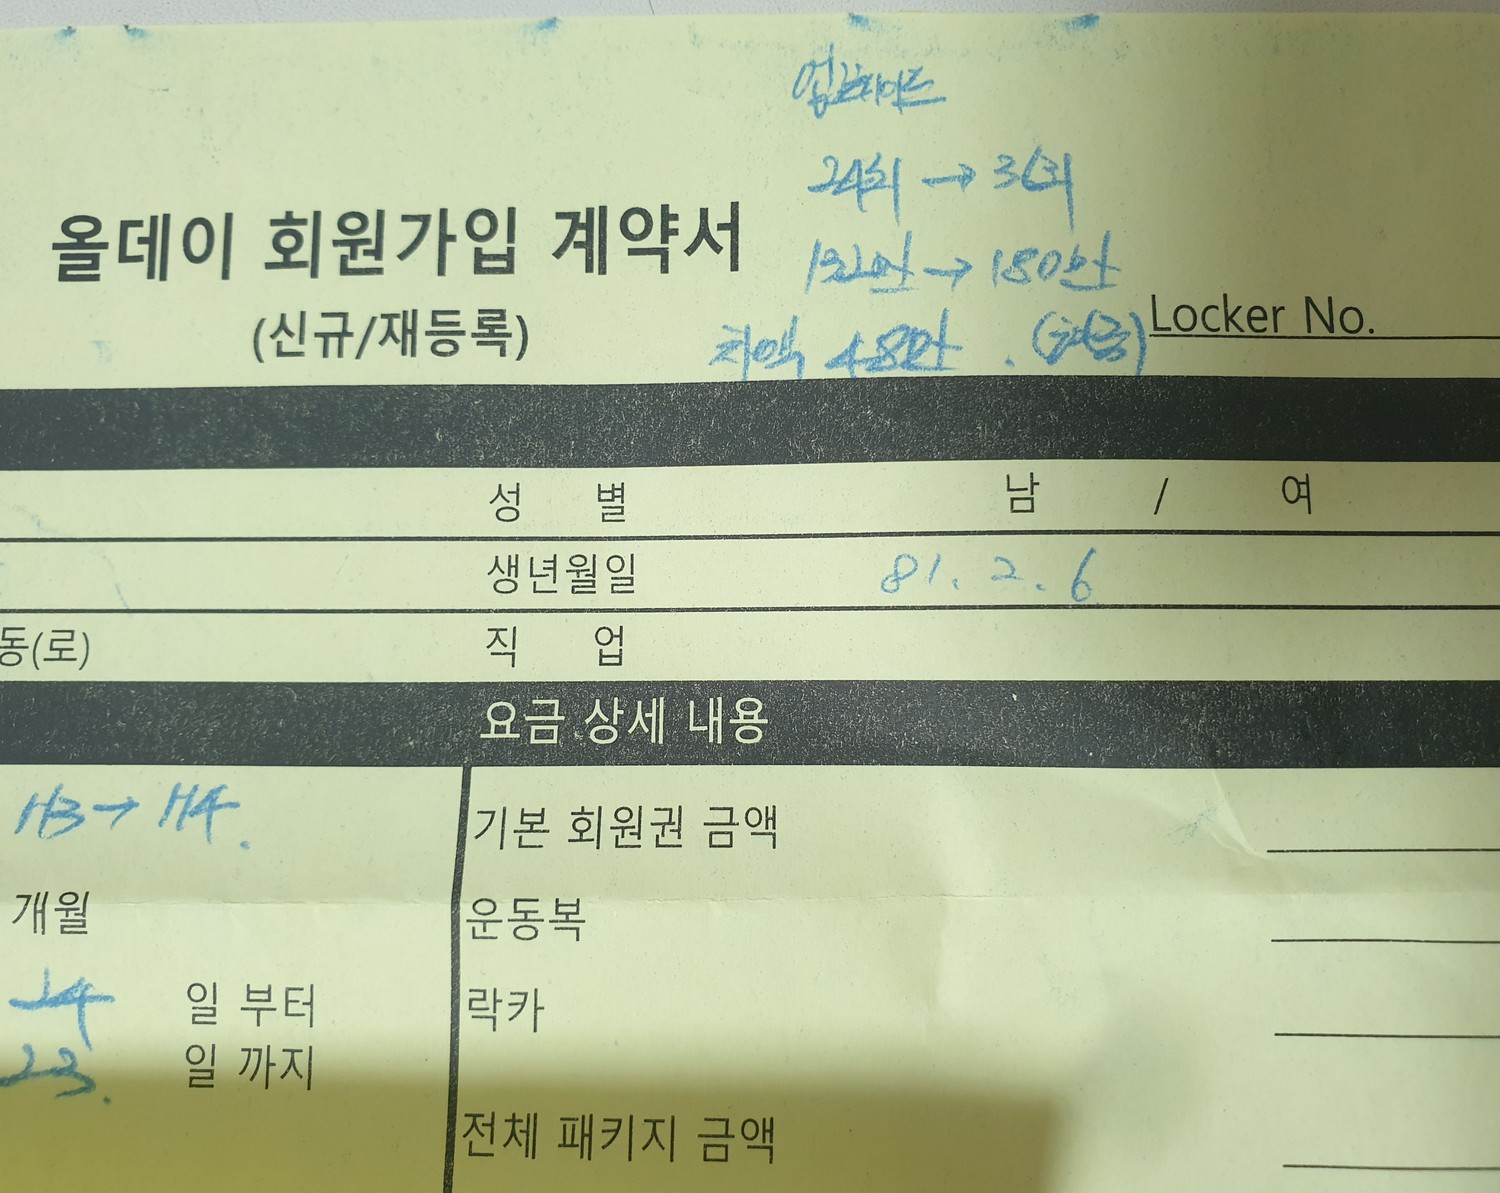 업그레이드
24회 → 36회
132만 → 180만
차액 48만 . (현금)
올데이 회원가입 계약서
(신규/재등록)
Locker No.
성 별 남 / 여
생년월일 81. 2. 6
동(로) 직 업
요금 상세 내용
H3 → H4. 기본 회원권 금액
개월 운동복
24 일 부터 락카
23. 일 까지
전체 패키지 금액